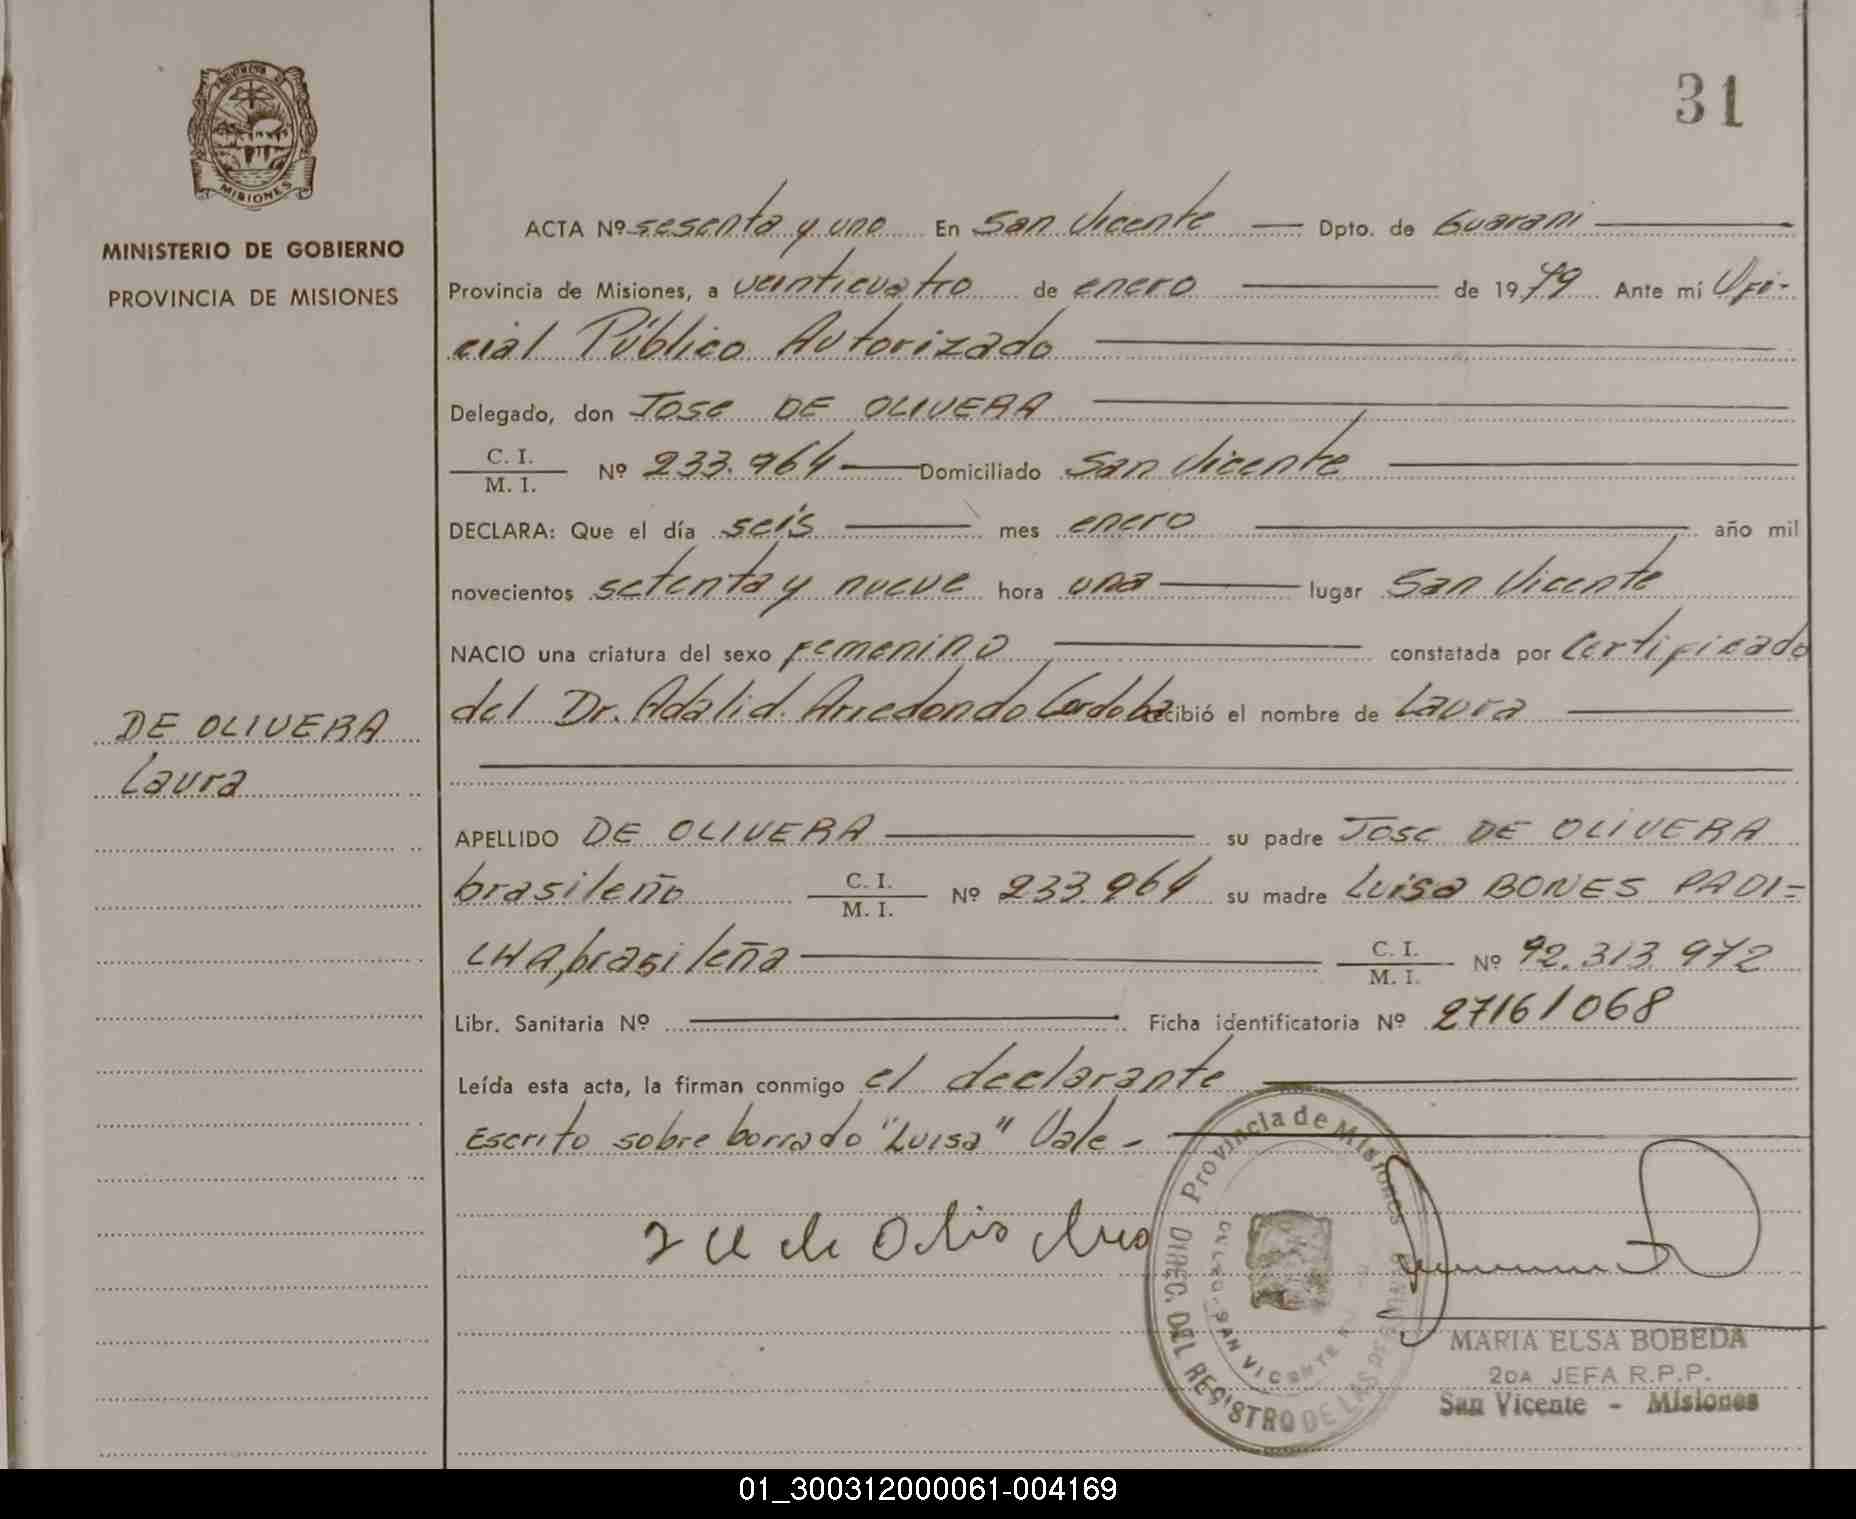 31
PROVINCIA DE
MISIONES
MINISTERIO DE GOBIERNO
PROVINCIA DE MISIONES
DE OLIVERA
Laura
ACTA Nº sesenta y uno En San Vicente Dpto. de Guarani
Provincia de Misiones, a veinticuatro de enero de 1979 Ante mí Ofi-
cial Público Autorizado
Delegado, don Jose DE OLIVERA
C. I.
M. I. Nº 233.964 Domiciliado San Vicente
DECLARA: Que el día seis mes enero año mil
novecientos setenta y nueve hora una lugar San Vicente
NACIO una criatura del sexo femenino constatada por Certificado
del Dr. Adalid Arredondo Cordoba recibió el nombre de Laura
APELLIDO DE OLIVERA su padre Jose DE OLIVERA
brasileño C. I. M. I. Nº 233.964 su madre Luisa BONES PADI=
LHA, brasileña C. I. M. I. Nº 92.313.972
Libr. Sanitaria Nº Ficha identificatoria Nº 27161068
Leída esta acta, la firman conmigo el declarante
Escrito sobre borrado "Luisa" Vale -
Provincia de Misiones
DIREC. DEL REGISTRO DE LAS PERSONAS
SAN VICENTE
MARIA ELSA BOBEDA
2DA JEFA R.P.P.
San Vicente - Misiones
01_300312000061-004169